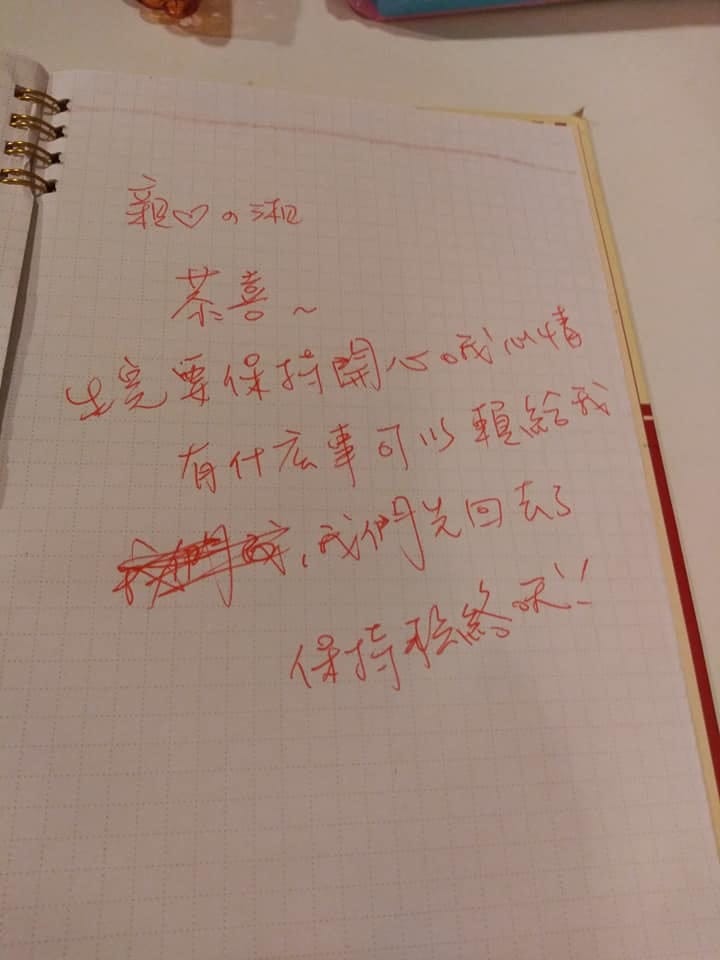 親♡の湘
恭喜~
生完要保持開心的心情
有什広事可以賴給我
我們先回去了
保持聯絡哦!!